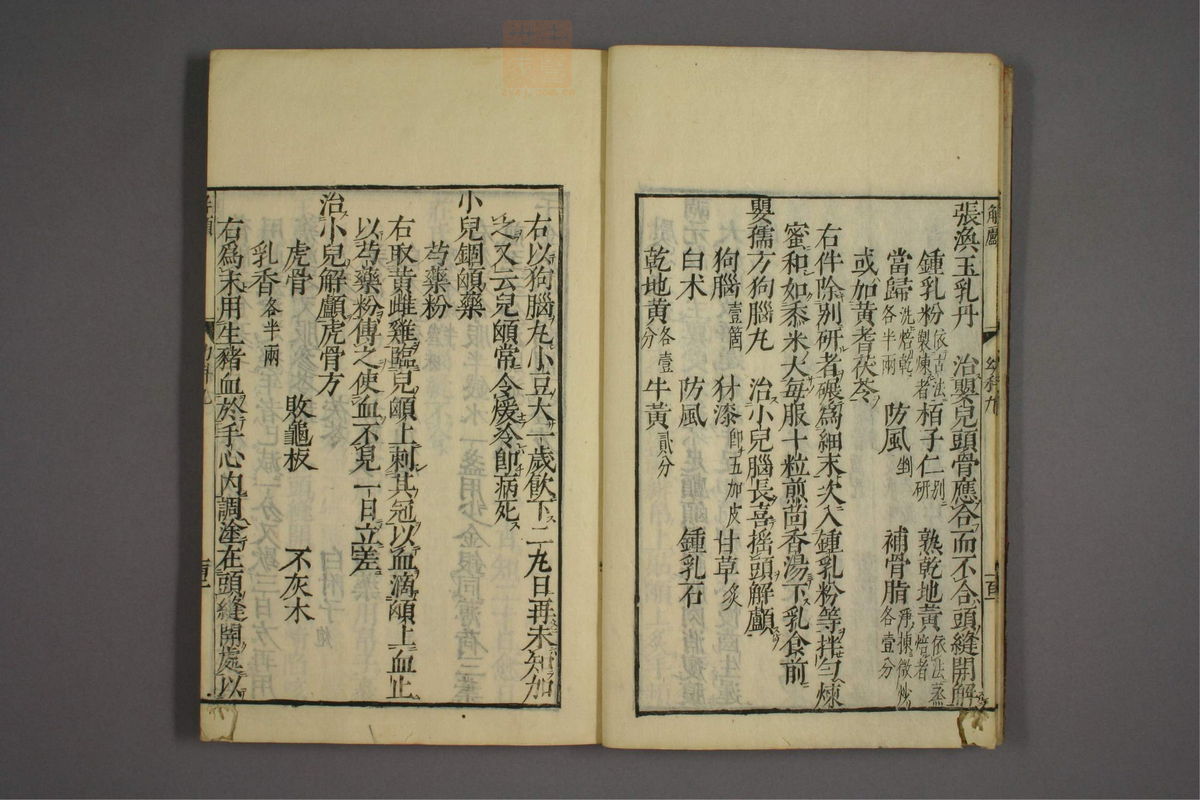 張渙玉乳丹　治嬰兒頭骨應合而不合頭縫開解
鍾乳粉依古法製煉者　栢子仁別研　熟乾地黃依法蒸焙者
當歸洗焙乾各半兩　防風剉　補骨脂淨揀微炒各壹分
或加黃耆茯苓
右件除別研者碾爲細末次入鍾乳粉等拌勻煉
蜜和如黍米大每服十粒煎茴香湯下乳食前
嬰孺方狗腦丸　治小兒腦長喜搖頭解顱
狗腦壹箇　犲漆即五加皮　甘草炙
白术　防風　鍾乳石
乾地黃各壹分　牛黃貳分
右以狗腦丸小豆大一歲飲下二丸日再未知加
之又云兒頤常令煖冷即病死
小兒錮頤藥
芍藥粉
右取黃雌雞臨兒頤上刺其冠以血滴頤上血止
以芍藥粉傅之使血不見一日立差
治小兒解顱虎骨方
虎骨　敗龜板　不灰木
乳香各半兩
右爲末用生豬血於手心內調塗在頭縫開處以